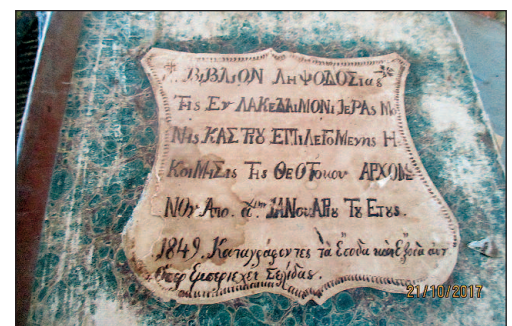 ΒΙΒΛΙΟΝ ΛΗΨΟΔΟΣίας
Της Εν ΛΑΚεΔΑΙΜΟΝΙ ΙΕΡΑς Μο
Νης ΚΑΣΤΡΟΥ ΕΠΙΛΕΓΟΜενης Η
ΚοιΜΗΣις Της ΘεΟΤοκου ΑΡΧΟΜΕ
ΝΟΥ Απο. α.ης ΙΑΝουΑΡΙου Του Ετους.
1849. Καταγράφοντες τὰ Ἔσοδα καὶ Ἔξοδα αυτ
Ὅπερ Ἐμπεριέχει Σελίδας.
21/10/2017